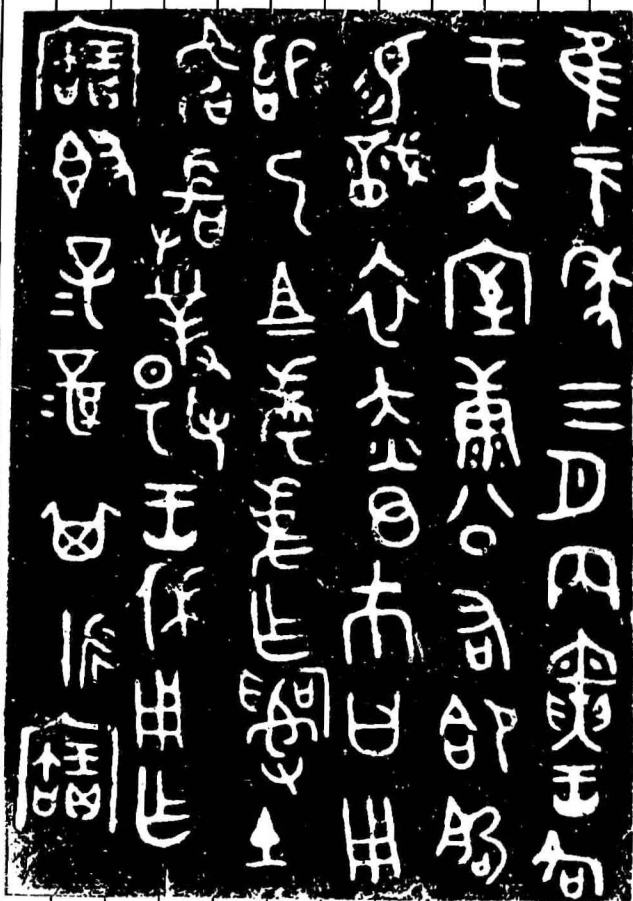 隹元年三月丙寅王各
于大室康公右郃
易戠衣赤⊙巿曰用
嗣乃且考事乍𤔲土
敢對揚王休用乍
寶簋子=孫=其永寶